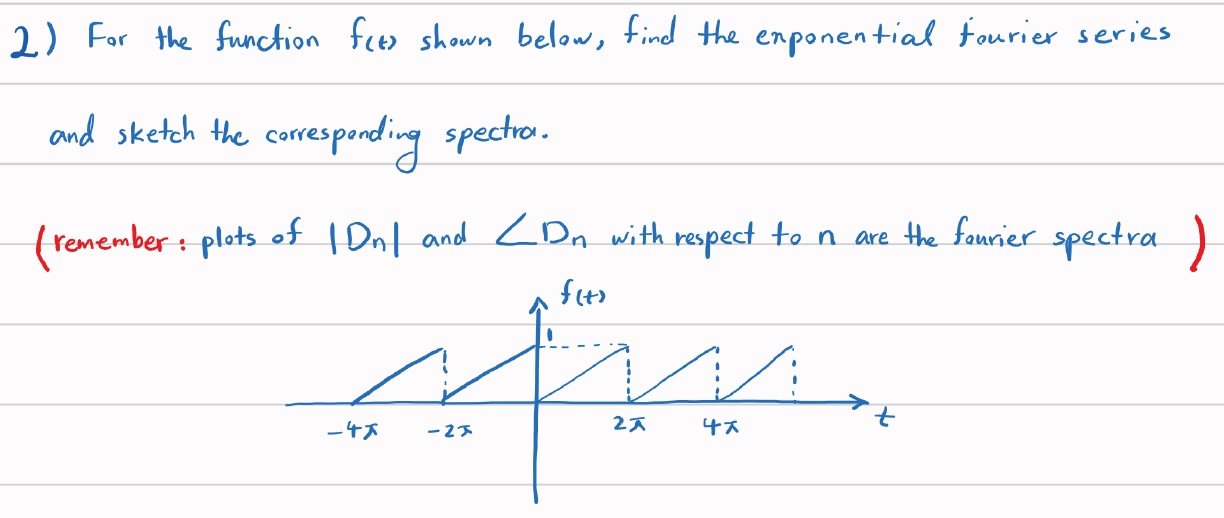 2) For the function f(t) shown below, find the exponential fourier series
and sketch the corresponding spectra.
(remember: plots of |Dn| and ∠Dn with respect to n are the fourier spectra)
f(t)
1
-4π -2π 2π 4π t